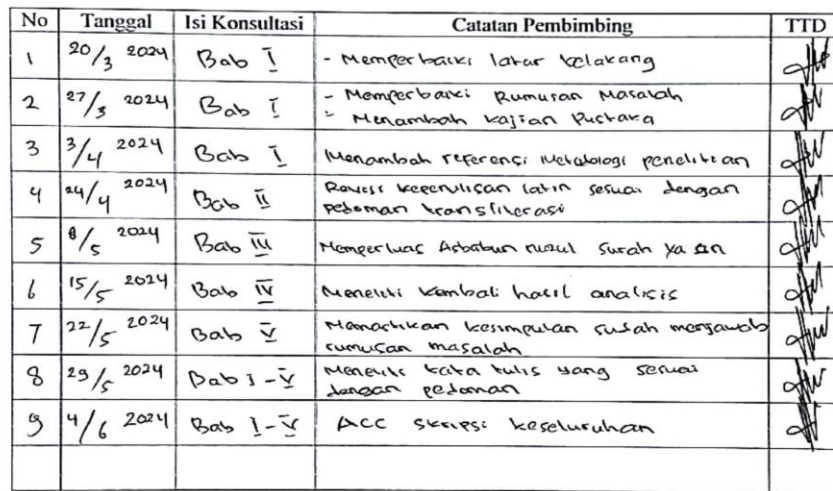 No Tanggal Isi Konsultasi Catatan Pembimbing TTD
1 20/3 2024 Bab I - Memperbaiki latar belakang
2 27/3 2024 Bab I - Memperbaiki Rumusan Masalah
- Menambah kajian Pustaka
3 3/4 2024 Bab I Menambah referensi Metodologi penelitian
4 24/4 2024 Bab II Revisi kepenulisan latin sesuai dengan
pedoman transliterasi
5 8/5 2024 Bab III Memperluas Asbabun nuzul surah Yasin
6 15/5 2024 Bab IV Meneliti kembali hasil analisis
7 22/5 2024 Bab V Memastikan kesimpulan sudah menjawab
rumusan masalah
8 29/5 2024 Bab I-V Meneliti kata tulis yang sesuai
dengan pedoman
9 4/6 2024 Bab I-V ACC skripsi keseluruhan